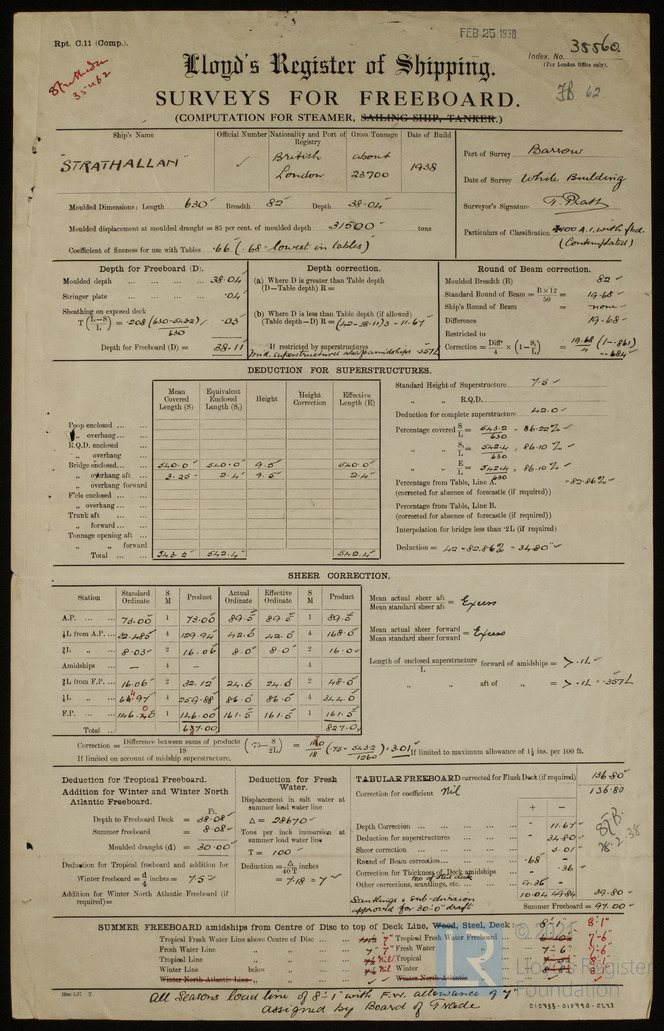 Rpt. C.11 (Comp.).
FEB 25 1938
Index. No. 35560.
(For London Office only).
Lloyd's Register of Shipping.
SURVEYS FOR FREEBOARD.
(COMPUTATION FOR STEAMER, SAILING SHIP, TANKER.)
Ship's Name
Official Number
Nationality and Port of Registry
Gross Tonnage
Date of Build
"STRATHALLAN"
British
London
about
23700
1938
Port of Survey Barrow
Date of Survey While Building
Surveyor's Signature
Particulars of Classification 100 A.1. with fbd.
(Contemplated)
Moulded Dimensions: Length 630 Breadth 82 Depth 38.04
Moulded displacement at moulded draught = 85 per cent. of moulded depth 31500 tons
Coefficient of fineness for use with Tables .66 (.68 = lowest in tables)
Depth for Freeboard (D).
Moulded depth 38.04
Stringer plate .04
Sheathing on exposed deck
T (L-S/L) = .208 (630-542.32)/630 .03
Depth for Freeboard (D) = 38.11
Depth correction.
(a) Where D is greater than Table depth
(D-Table depth) R =
(b) Where D is less than Table depth (if allowed)
(Table depth-D) R = (42-38.11) 3 = 11.67
If restricted by superstructures
Mid. superstructures abaft amidships .357L
Round of Beam correction.
Moulded Breadth (B) 82
Standard Round of Beam = B×12/50 = 19.68
Ship's Round of Beam = none
Difference 19.68
Restricted to
Correction = Diffce/4 × (1-S/L) = 19.68/4 (1-.861)
= .684
DEDUCTION FOR SUPERSTRUCTURES.
Mean Covered Length (S)
Equivalent Enclosed Length (S₁)
Height
Height Correction
Effective Length (E)
Poop enclosed
„ overhang
R.Q.D. enclosed
„ overhang
Bridge enclosed 540.0 540.0 9.5 540.0
„ overhang aft 3.25 2.4 9.5 2.4
„ overhang forward
F'cle enclosed
„ overhang
Trunk aft
„ forward
Tonnage opening aft
„ „ forward
Total 543.2 542.4 542.4
Standard Height of Superstructure 7.5
„ „ R.Q.D.
Deduction for complete superstructure 42.0
Percentage covered S/L = 543.2/630 = 86.22%
„ S₁/L = 542.4/630 = 86.10%
„ E/L = 542.4/630 = 86.10%
Percentage from Table, Line A. = 82.86%
(corrected for absence of forecastle (if required))
Percentage from Table, Line B.
(corrected for absence of forecastle (if required))
Interpolation for bridge less than ·2L (if required)
Deduction = 42 × 82.86% = 34.80
SHEER CORRECTION.
Station
Standard Ordinate
S M
Product
Actual Ordinate
Effective Ordinate
S M
Product
A.P. 73.00 1 73.00 89.5 89.5 1 89.5
⅙L from A.P. 32.485 4 129.94 42.0 42.0 4 168.0
⅓L „ 8.03 2 16.06 8.0 8.0 2 16.0
Amidships - 4 - 4
⅓L from F.P. 16.06 2 32.12 24.0 24.0 2 48.0
⅙L „ 64.97 4 259.88 86.0 86.0 4 344.0
F.P. 146.0 1 146.00 161.5 161.5 1 161.5
Total 657.00 827.0
Mean actual sheer aft / Mean standard sheer aft = Excess
Mean actual sheer forward / Mean standard sheer forward = Excess
Length of enclosed superstructure / L forward of amidships = > .1L
„ „ aft of „ = > .1L = .357L
Correction = Difference between sums of products / 18 (·75- S/2L) = 170/18 (.75 - 543.2/1260) = 3.01
If limited on account of midship superstructure.
If limited to maximum allowance of 1½ ins. per 100 ft.
Deduction for Tropical Freeboard.
Addition for Winter and Winter North Atlantic Freeboard.
Ft.
Depth to Freeboard Deck = 38.08
Summer freeboard = 8.08
Moulded draught (d) = 30.00
Deduction for Tropical freeboard and addition for
Winter freeboard = d/4 inches = 7.5
Addition for Winter North Atlantic Freeboard (if required) =
Deduction for Fresh Water.
Displacement in salt water at summer load water line
Δ = 28670
Tons per inch immersion at summer load water line
T = 100
Deduction = Δ/40T inches
= 7.18 = 7
TABULAR FREEBOARD corrected for Flush Deck (if required) 136.80
Correction for coefficient Nil 136.80
+ -
Depth Correction - 11.67
Deduction for superstructures - 34.80
Sheer correction - 3.01
Round of Beam correction .68 -
Correction for Thickness of Deck amidships - .36
Other corrections, scantlings, etc. 9.36 -
10.04 49.84 39.80
Scantlings & sub-division
approved for 30'-0" draft
Summer Freeboard = 97.00
SUMMER FREEBOARD amidships from Centre of Disc to top of Deck Line, Wood, Steel, Deck: 8'-1"
Tropical Fresh Water Line above Centre of Disc 7"
Fresh Water Line „ „ 7"
Tropical Line „ „ Nil
Winter Line below „ Nil
Winter North Atlantic Line „ „
Tropical Fresh Water Freeboard 7'-6"
Fresh Water „ 7'-6"
Tropical „ 8'-1"
Winter „ 8'-1"
Winter North Atlantic „
All Seasons load line of 8'-1" with F.W. allowance of 7"
assigned by Board of Trade
© 2021
Lloyd's Register
Foundation
010933-010940-0223